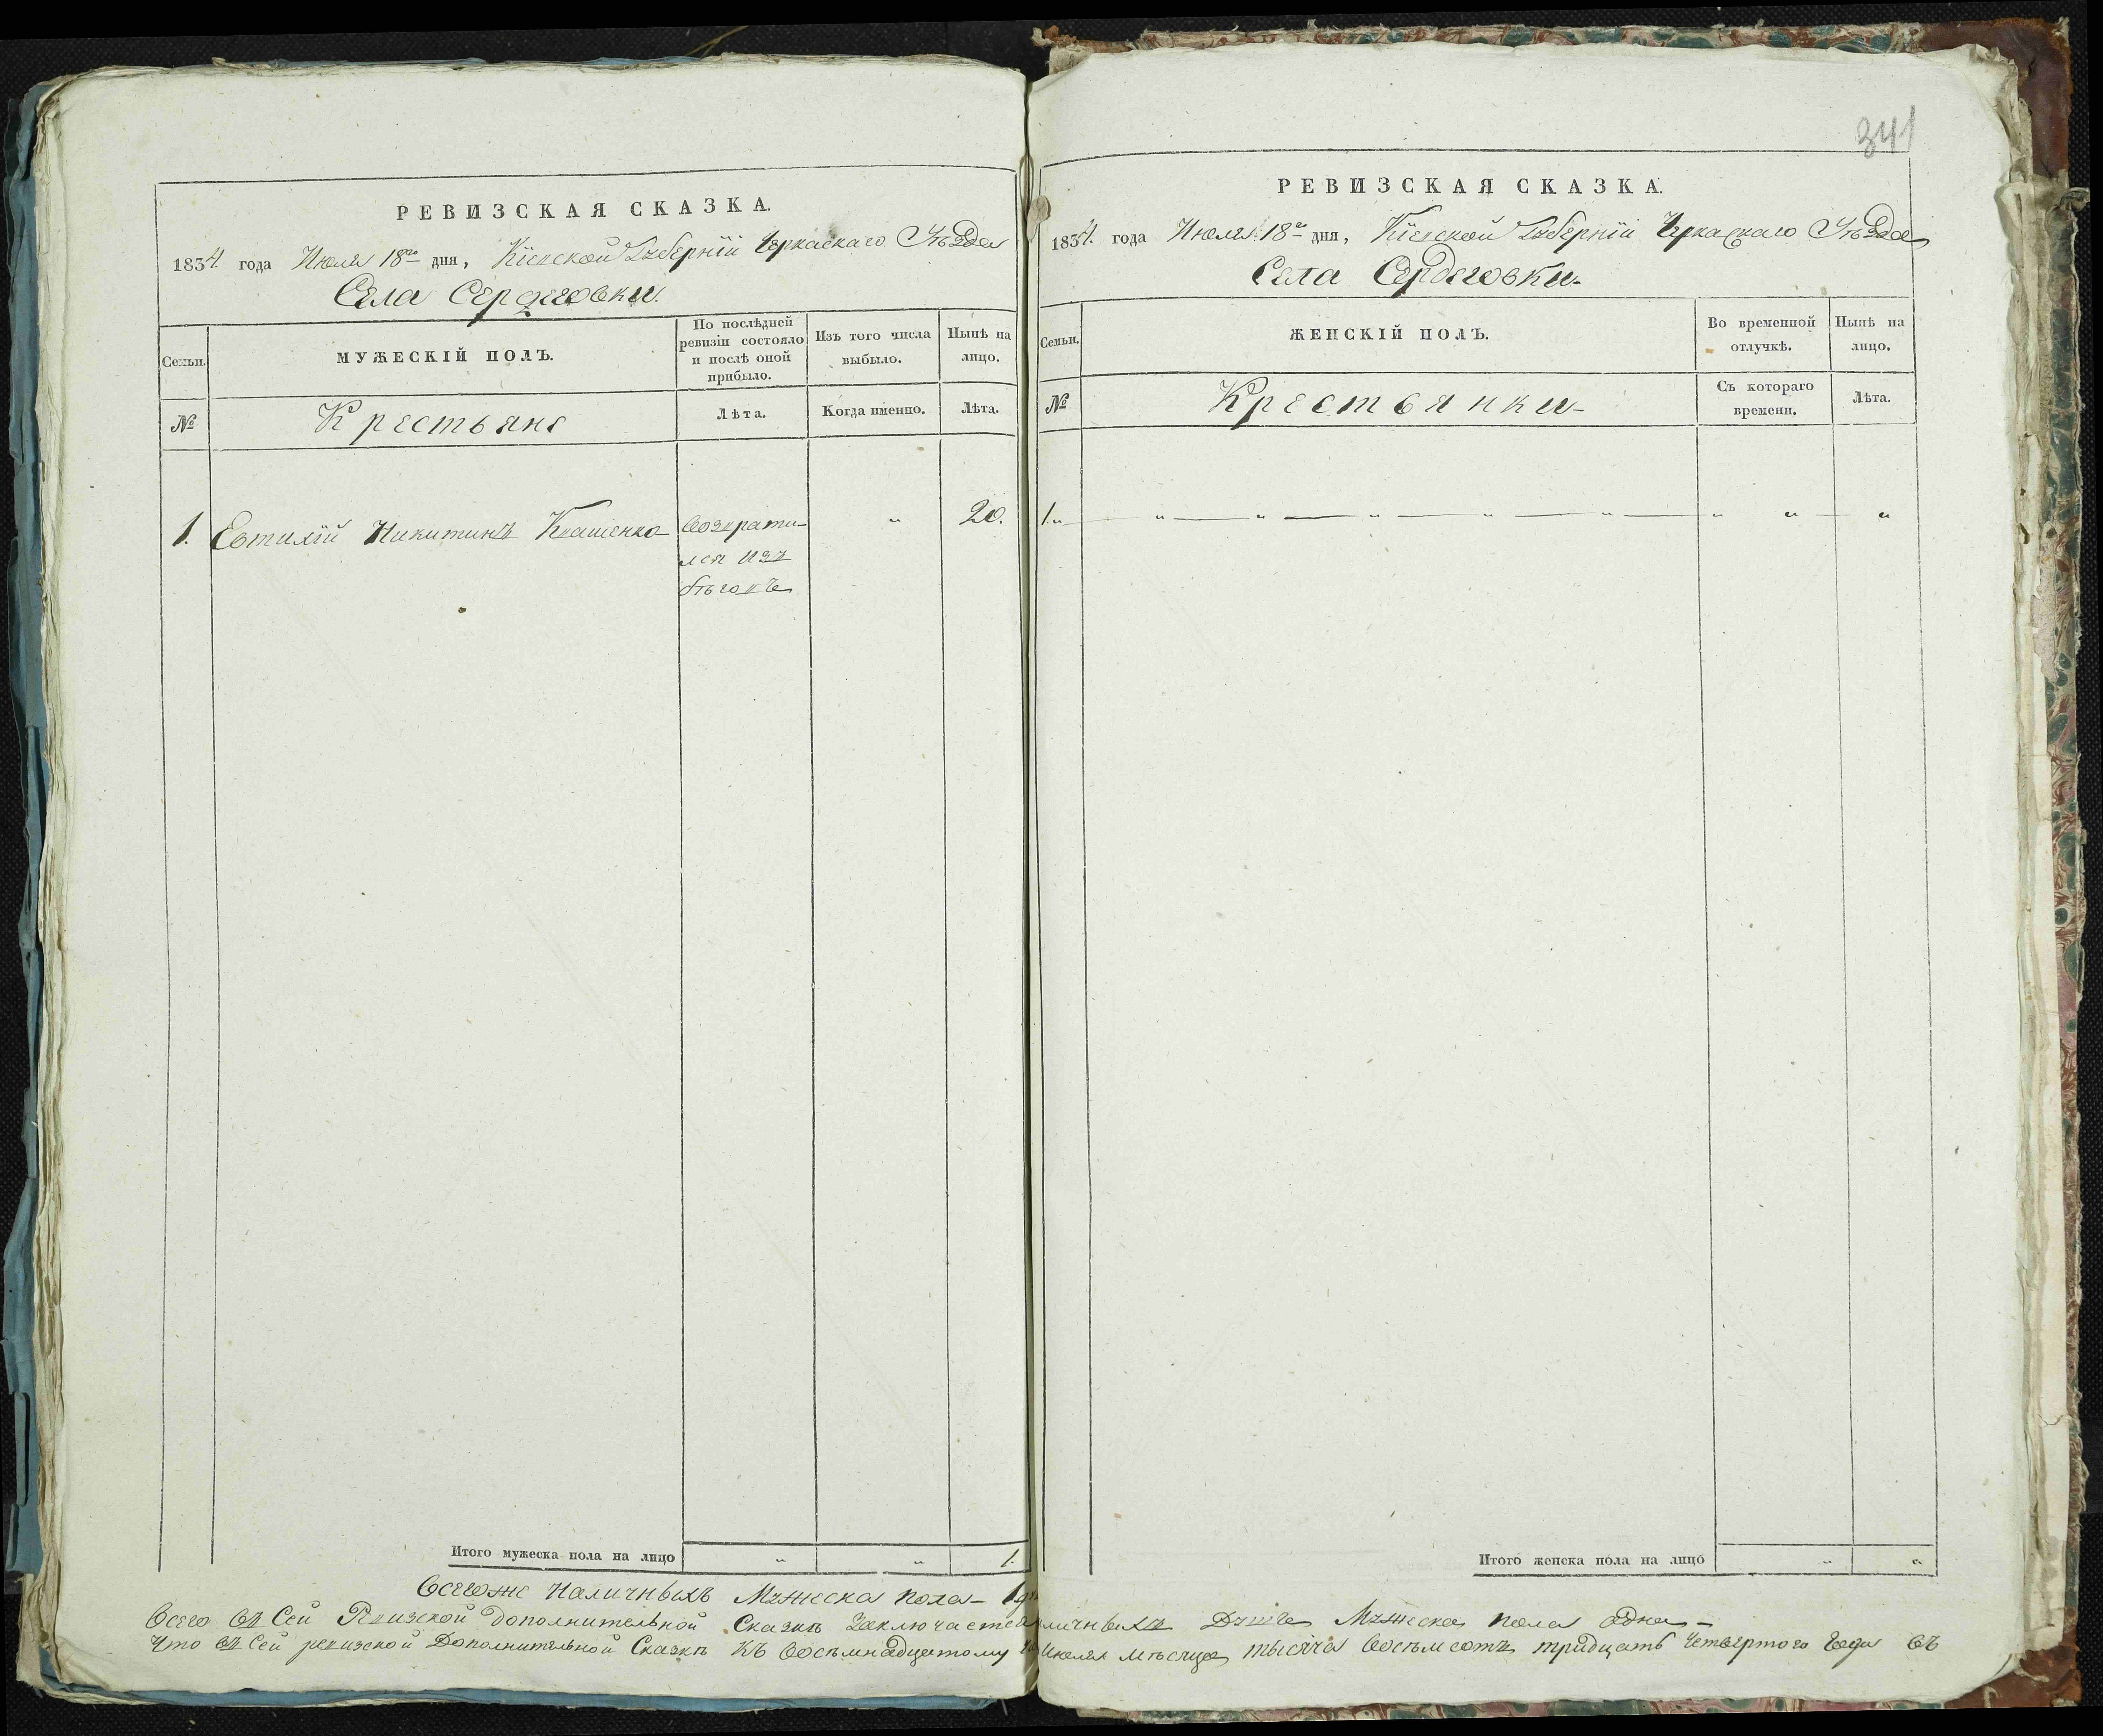 РЕВИЗСКАЯ СКАЗКА.
1834. года Июля 18го дня, Кіевской Губерніи Черкаскаго Уѣзда
Села Сердеговки.
Семьи.
МУЖЕСКІЙ ПОЛЪ.
По послѣдней
ревизіи состояло
и послѣ оной
прибыло.
Изъ того числа
выбыло.
Нынѣ на
лицо.
№
Крестьяне
Лѣта.
Когда именно.
Лѣта.
1. Евтихій Никитинъ Квашенко Возврати- „ 20.
лся изъ
бѣговъ
Итого мужеска пола на лицо „ „ 1.
Всегоже наличныхъ Мужеска пола - 1
Всего въ Сей Ревизской дополнительной Сказкѣ заключается
Что въ Сей ревизской Дополнительной Сказкѣ къ восѣмнадцатому
341
РЕВИЗСКАЯ СКАЗКА.
1834. года Июля 18го дня, Кіевской Губерніи Черкаскаго Уѣзда
Села Сердеговки.
Семьи.
ЖЕНСКІЙ ПОЛЪ.
Во временной
отлучкѣ.
Нынѣ на
лицо.
№
Крестьянки
Съ котораго
времени.
Лѣта.
1. „ „ „ „ „ „ „ „
Итого женска пола на лицо „ „
личныхъ Душа Мужеска пола одна -
Июля мѣсяца тысяча восѣмсотъ тридцать четвертого Года въ